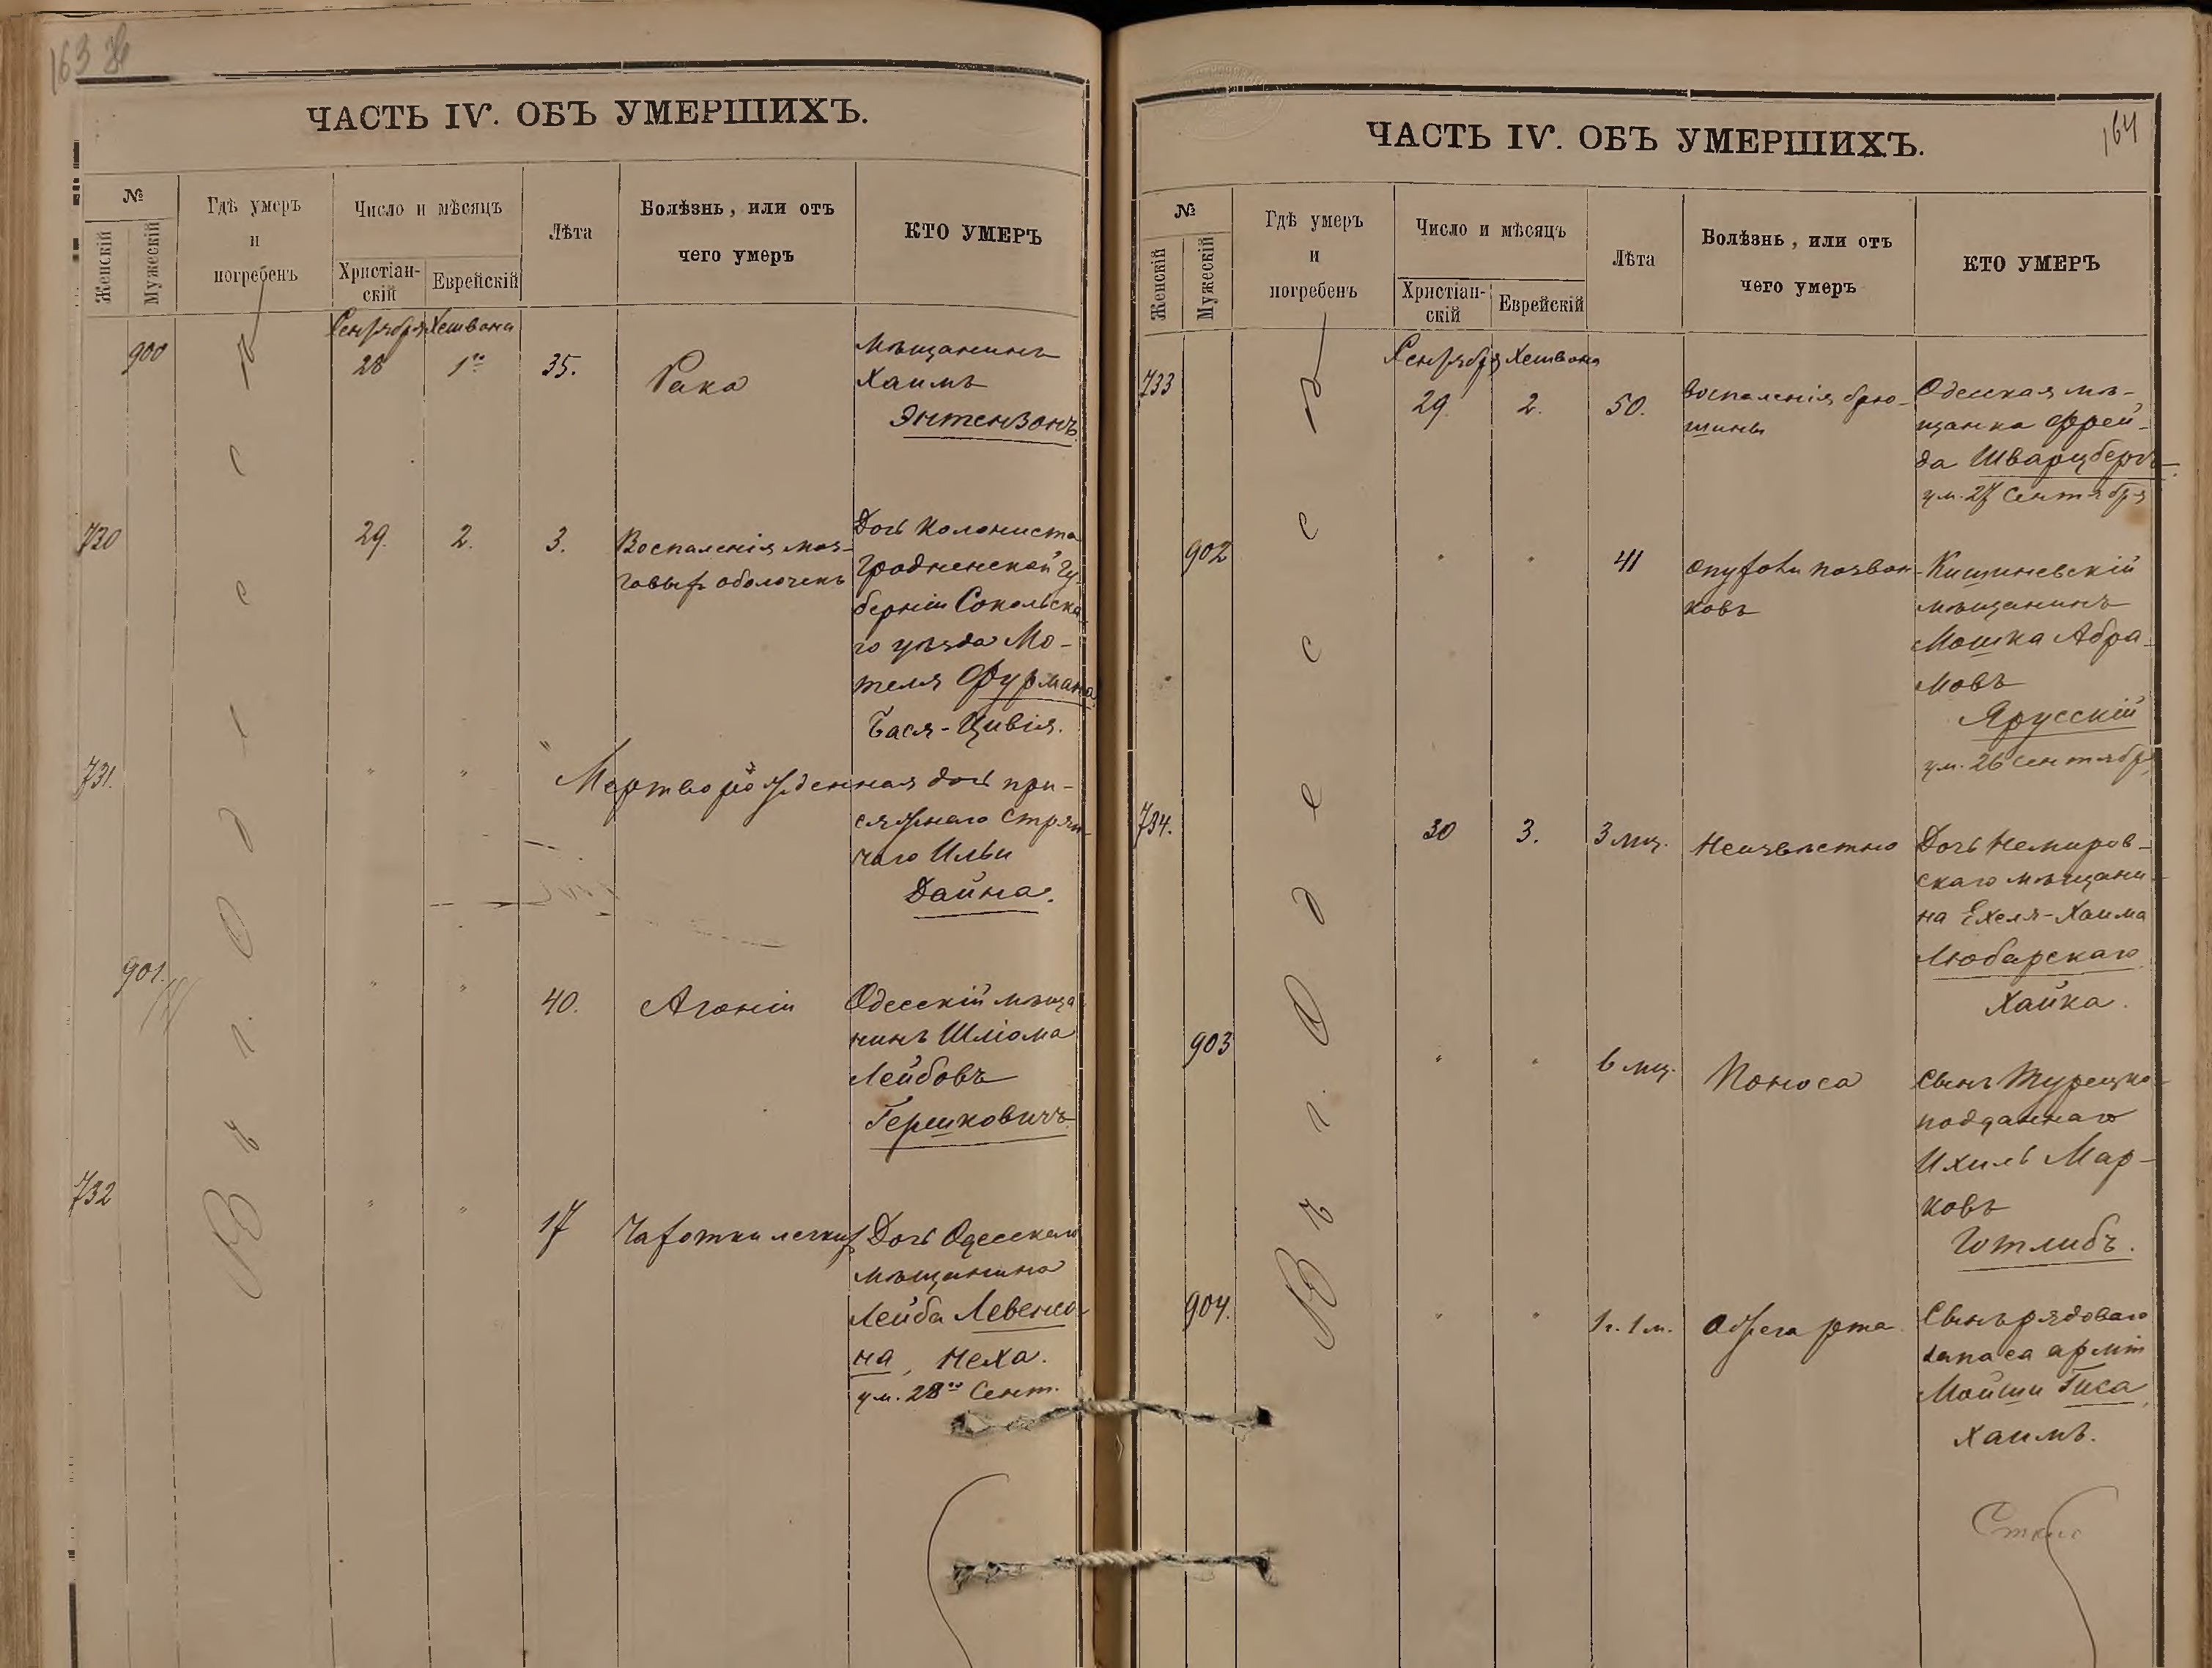 163
ЧАСТЬ IV. ОБЪ УМЕРШИХЪ.
№
Женскій
Мужескій
Гдѣ умеръ
и
погребенъ
Число и мѣсяцъ
Христіан-
скій
Еврейскій
Лѣта
Болѣзнь, или отъ
чего умеръ
КТО УМЕРЪ
Въ г. Одессѣ
Сентября Хешвана
900 28 1го 35. Рака
Мѣщанинъ
Хаимъ
Энтензонъ
730 29. 2. 3.
Воспаленія моз-
говыхъ оболочекъ
Дочь колониста
Гродненской гу-
берніи Сокольска-
го уѣзда Мо-
теля Фурмана
Бася-Цивія.
731. " " "
Мертворожденная дочь при-
сяжнаго стряп-
чаго Ильи
Дайна.
901. " " 40. Агоніи
Одесскій мѣща
нинъ Шліома
Лейбовъ
Гершковичъ
732 " " 17 Чахотки легкихъ
Дочь Одесскаго
мѣщанина
Лейба Левензо
на, Неха.
ум. 28го Сент.
164
ЧАСТЬ IV. ОБЪ УМЕРШИХЪ.
№
Женскій
Мужескій
Гдѣ умеръ
и
погребенъ
Число и мѣсяцъ
Христіан-
скій
Еврейскій
Лѣта
Болѣзнь, или отъ
чего умеръ
КТО УМЕРЪ
Въ г. Одессѣ
Сентября Хешвана
733 29. 2. 50.
Воспаленія брю-
шины
Одесская мѣ-
щанка Фрей-
да Шварцбергъ
ум. 27 Сентября
902 " " 41
Опухоли позвон-
ковъ
Кишиневскій
мѣщанинъ
Мошка Абра-
мовъ
Ярусскій
ум. 26 сентября
734. 30 3. 3 мц. Неизвѣстно
Дочь Немиров-
скаго мѣщани-
на Ехеля-Хаима
Любарскаго
Хайка.
903 " " 6 мц. Поноса
Сынъ Турецко-
подданнаго
Ихиль Мар-
ковъ
Готлибъ.
904. " " 1 г. 1 м. Ожега рта
Сынъ рядоваго
запаса арміи
Мойши Гиса,
Хаимъ.